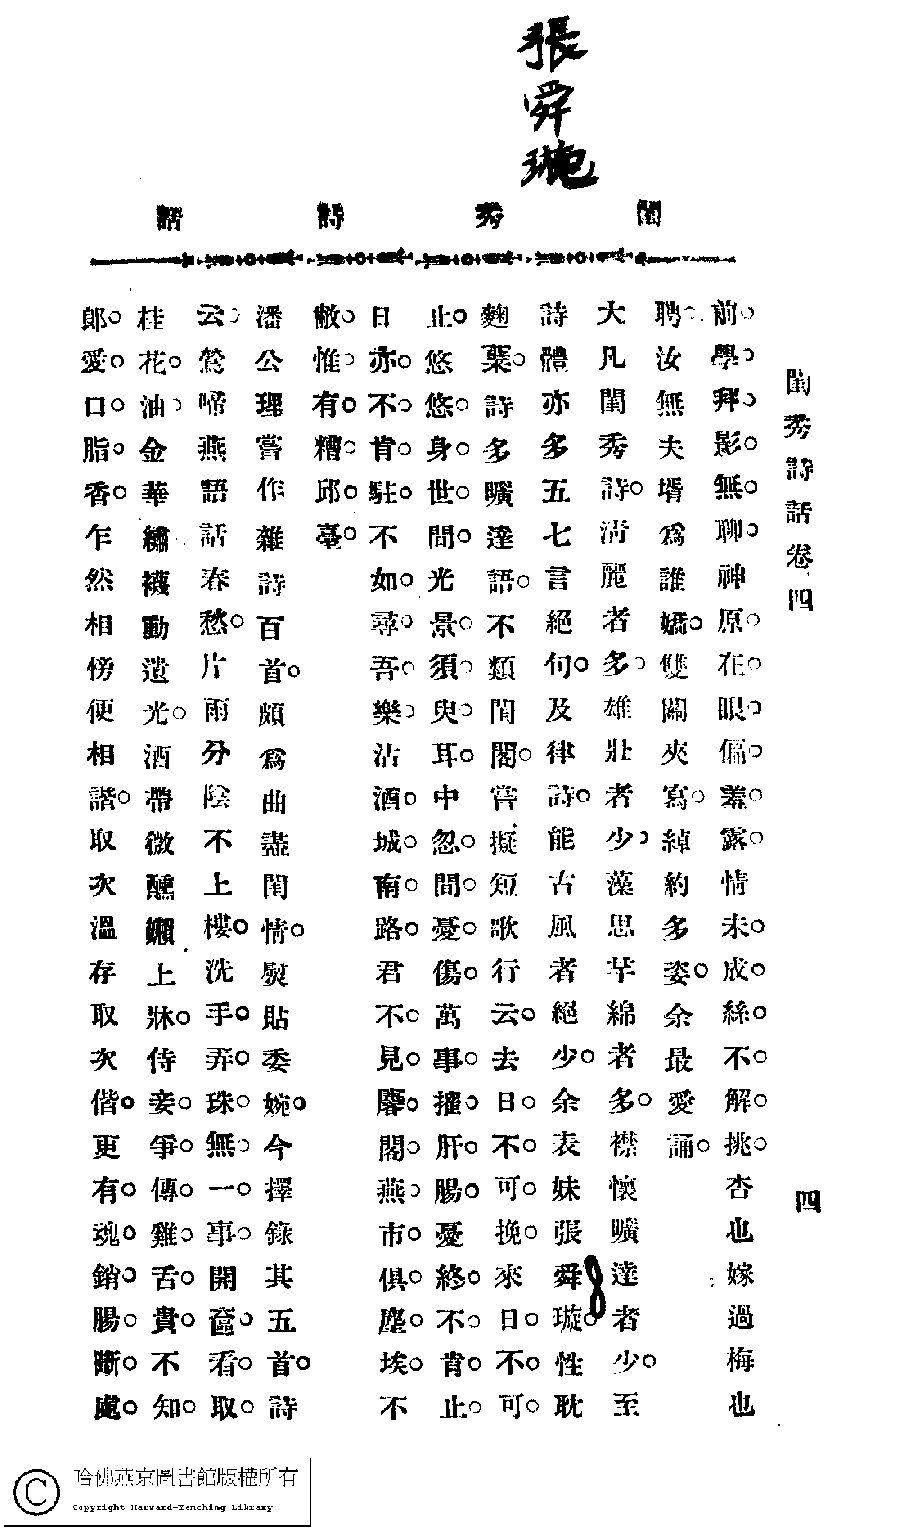 張舜璇
閨秀詩話
閨秀詩話卷四
四
前學拜影無聊神原在眼偏羞露情未成絲不解挑杏也嫁過梅也
聘汝無夫壻爲誰嬌雙關夾寫綽約多姿余最愛誦
大凡閨秀詩清麗者多雄壯者少藻思芊綿者多襟懷曠達者少至
詩體亦多五七言絕句及律詩能古風者絕少余表妹張舜璇性耽
麴糵詩多曠達語不類閨閣嘗擬短歌行云去日不可挽來日不可
止悠悠身世間光景須臾耳中忽間憂傷萬事摧肝腸憂終不肯止
日亦不肯駐不如尋吾樂沽酒城南路君不見麐閣燕市俱塵埃不
敝惟有糟邱臺
潘公理嘗作雜詩百首頗爲曲盡閨情熨貼委婉今擇錄其五首詩
云鶯啼燕語話春愁片雨分陰不上樓洗手弄珠無一事開奩看取
桂花油金華繡襪動遺光酒帶微醺嬾上牀侍妾爭傳雞舌貴不知
郎愛口脂香乍然相傍便相諧取次溫存取次偕更有魂銷腸斷處
哈佛燕京圖書館版權所有
Copyright Harvard-Yenching Library